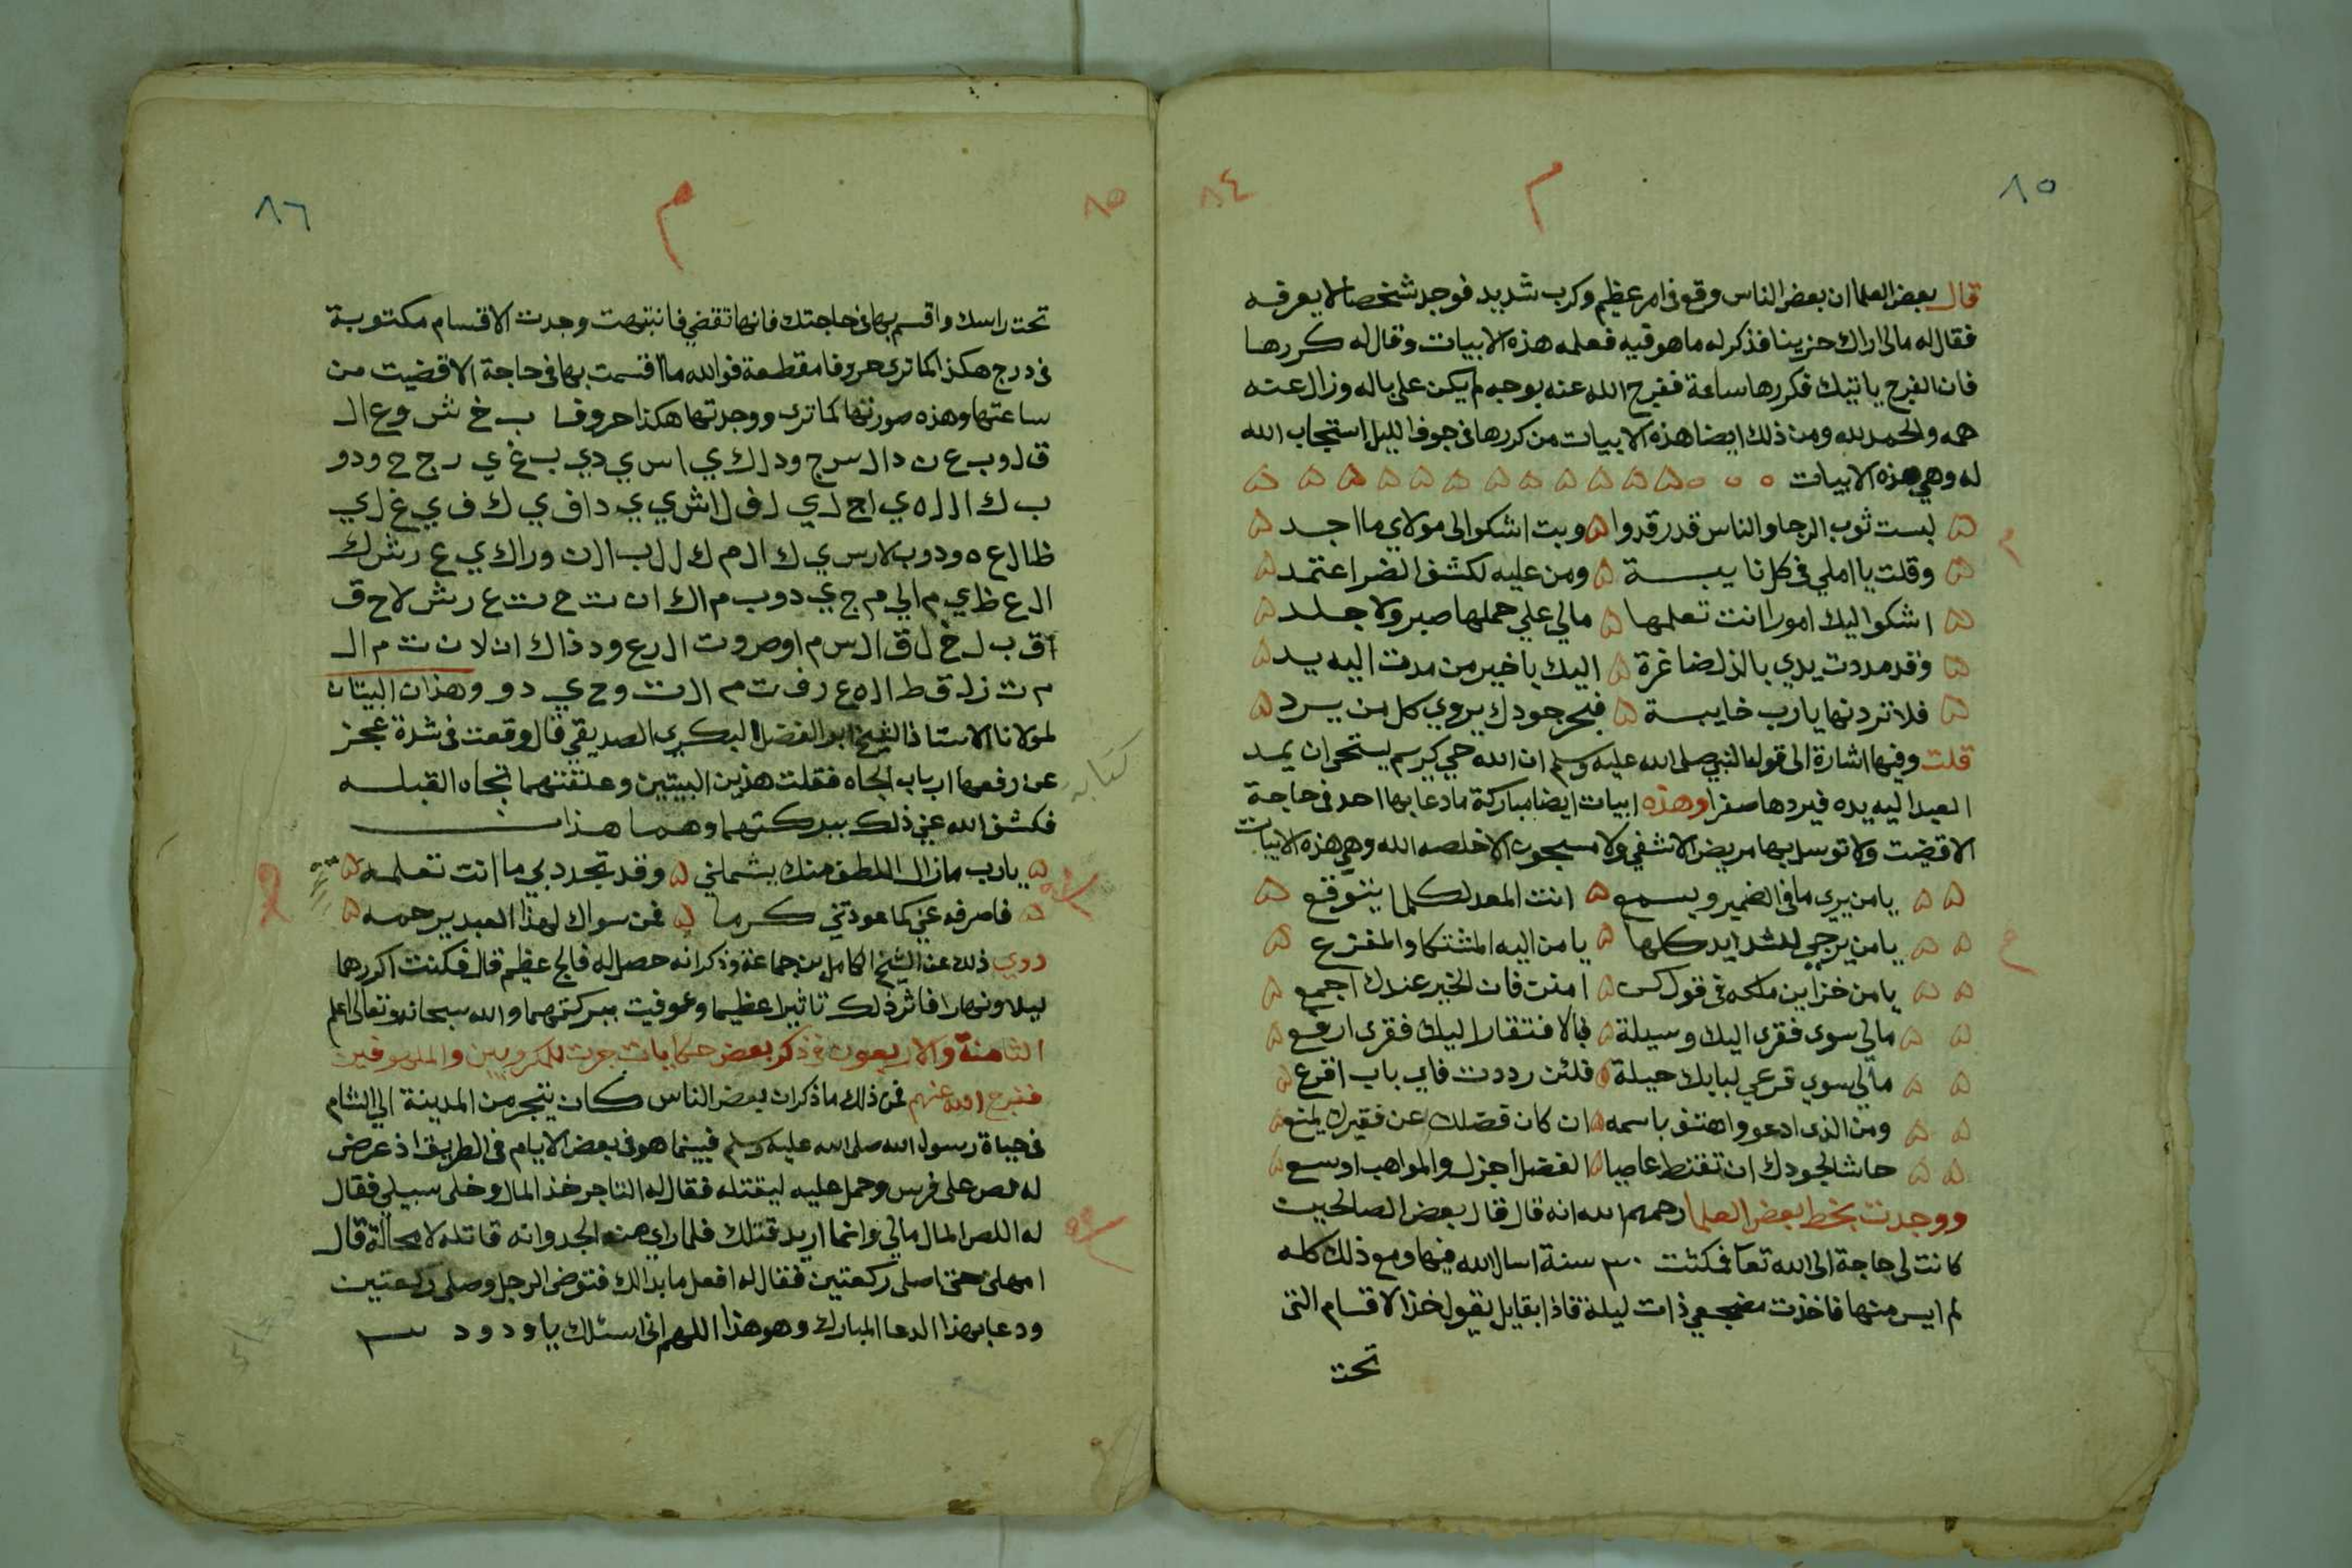 ٨٥
٨٤
م
قال بعض العلما ان بعض الناس وقع في امر عظيم وكرب شديد فوجد شخصا لا يعرفه
فقال له مالي اراك حزينا فذكر له ما هو فيه فعلمه هذه الابيات وقال له كررها
فان الفرج ياتيك فكررها ساعة ففرج الله عنه بوجه لم يكن على باله وزال عنه
همه والحمد لله ومن ذلك ايضا هذه الابيات من كررها في جوف الليل استجاب الله
له وهي هذه الابيات
لبست ثوب الرجا والناس قد رقدوا وبت اشكو الى مولاي ما اجد
وقلت يا املي في كل نايبة ومن عليه لكشف الضر اعتمد
اشكوا اليك امورا انت تعلمها مالي علي حملها صبر ولا جلد
وقد مددت يدي بالذل ضاغرة اليك يا خير من مدت اليه يد
فلا تردنها يا رب خايبة فبحر جودك يروي كل من يرد
قلت وفيها اشارة الى قول النبي صلى الله عليه وسلم ان الله حي كريم يستحى ان يمد
العبد اليه يده فيردها صفرا وهذه ابيات ايضا مباركة ما دعا بها احد في حاجة
الا قضيت ولا توسل بها مريض الا شفي ولا مسجون الا خلصه الله وهي هذه الابيات
يا من يرى ما في الضمير ويسمع انت المعد لكلما يتوقع
يا من يرجي للشدايد كلها يا من اليه المشتكا والمفزع
يا من خزاين ملكه في قول كن امنن فان الخير عندك اجمع
مالي سوى فقرى اليك وسيلة فبالافتقار اليك فقرى ارفع
مالي سوي قرعي لبابك حيلة فلئن رددت فاي باب اقرع
ومن الذى ادعو واهتف باسمه ان كان فضلك عن فقيرك يمنع
حاشا لجودك ان تقنط عاصيا الفضل اجزل والمواهب اوسع
ووجدت بخط بعض العلما رحمهم الله انه قال قال بعض الصالحين
كانت لي حاجة الى الله تعا فمكثت ٣٠ سنة اسال الله فيها ومع ذلك كله
لم ايس منها فاخذت مضجعي ذات ليلة فاذا بقايل يقول خذ الاقسام التي
تحت
٨٦
٨٥
م
تحت راسك واقسم بها في حاجتك فانها تقضي فانتبهت وجدت الاقسام مكتوبة
في درج هكذا كما ترى حروفا مقطعة فوالله ما اقسمت بها في حاجة الا قضيت من
ساعتها وهذه صورتها كما ترى ووجدتها هكذا حروفا ب خ ش و ع ال
ق ل و ب ع ن د ال س ج و د ل ك ي ا س ي د ي ب غ ي ر ج ح و د و
ب ك ا ل ل ه ي ا ج ل ي
م ت ز ل ق ط ال ه ع ر ف ت م ال ت و ح ي د و وهذان البيتان
لمولانا الاستاذ الشيخ ابو الفضل البكري الصديقي قال وقعت في شدة عجز
عن رفعها ارباب الجاه فقلت هذين البيتين وعلقتهما تجاه القبله
فكشف الله عني ذلك ببركتهما وهما هذان
يا رب ما زال اللطف منك يشملني وقد تجدد بي ما انت تعلمه
فاصرفه عني كما عودتني كرما فمن سواك لهذا العبد يرحمه
روي ذلك عن الشيخ الكامل بن جماعة وذكر انه حصل له فالج عظيم قال فكنت اكررهما
ليلا ونهارا فاثر ذلك تاثيرا عظيما وعوفيت ببركتهما والله سبحانه وتعالى اعلم
الثامنة والاربعون في ذكر بعض حكايات جرت للمكروبين والملهوفين
ففرج الله عنهم فمن ذلك ما ذكر ان بعض الناس كان يتجر من المدينة الى الشام
في حياة رسول الله صلى الله عليه وسلم فبينما هو في بعض الايام في الطريق اذ عرض
له لص على فرس وحمل عليه ليقتله فقال له التاجر خذ المال وخلى سبيلي فقال
له اللص المال مالي وانما اريد قتلك فلما راى منه الجد وانه قاتله لا محالة قال
امهلني حتى اصلي ركعتين فقال له افعل ما بدا لك فتوضى الرجل وصلى ركعتين
ودعا بهذا الدعا المبارك وهو هذا اللهم اني اسئلك يا ودود
كتابه